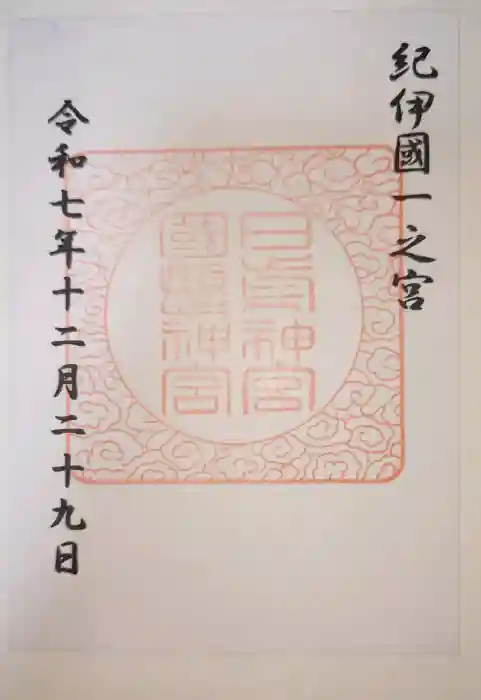 紀伊國一之宮
日前神宮
國懸神宮
令和七年十二月二十九日